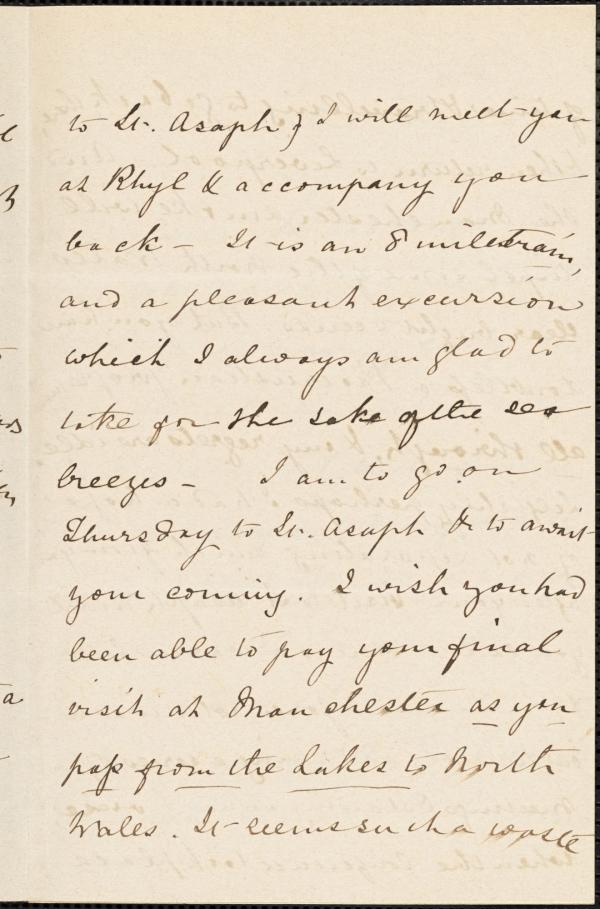 to St. Asaph & I will meet you
at Rhyl & accompany you
back – It is an 8 mile train,
and a pleasant excursion
which I always am glad to
take for the sake of the sea
breezes – I am to go on
Thursday to St. Asaph & to await
your coming. I wish you had
been able to pay your final
visit at Manchester as you
pass from the Lakes to North
Wales. It seems such a waste